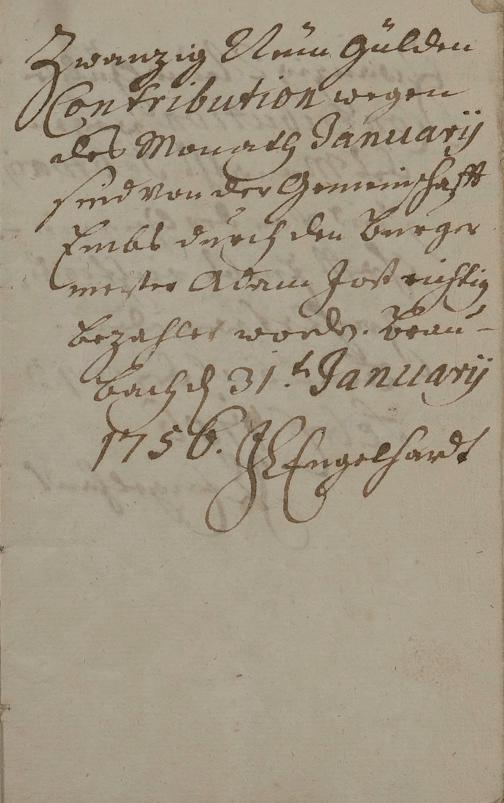 Zwanzig Neün Gülden
Contribution wegen
des Monath Januarij
sind von der Gemeinschafft
Embs durch den Burger
meister Adam Jost richtig
bezahlet worden. Brau-
bach d 31.t Januarij
1756. JL Engelhardt